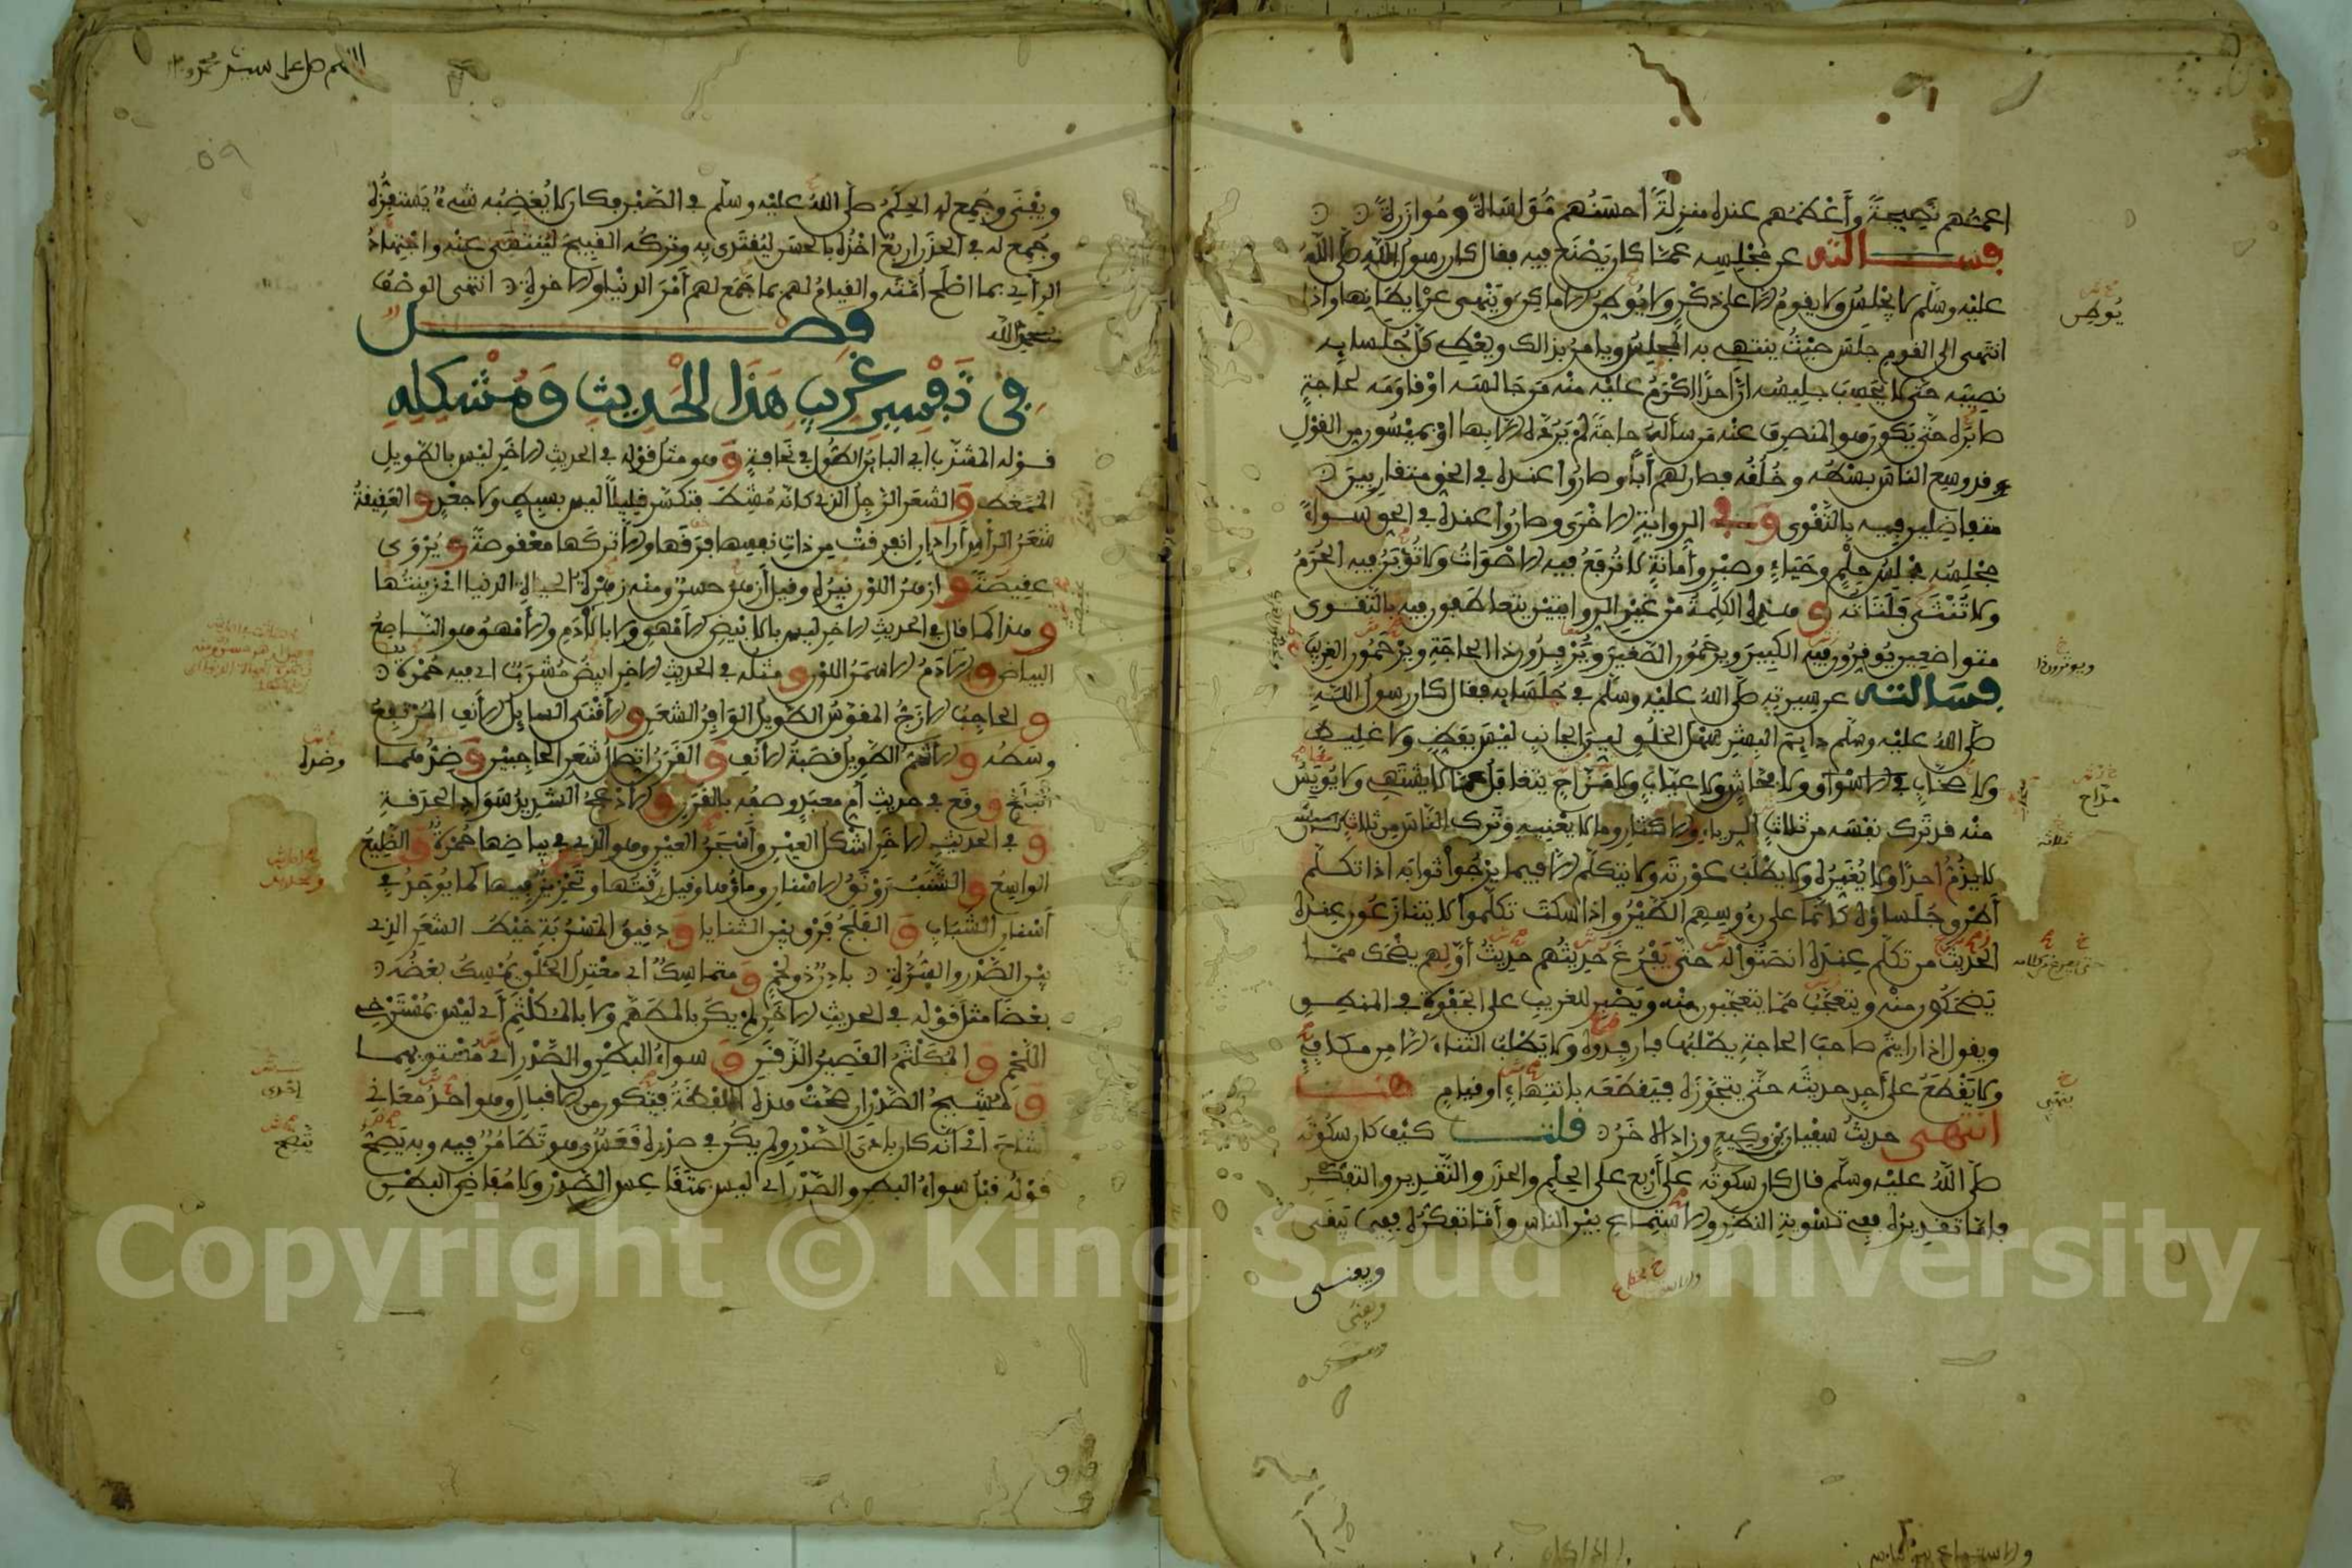 اعمهم نصيحة وأعظمهم عنده منزلة أحسنهم مواساة وموازرة
فسألته عن مجلسه عما كان يصنع فيه فقال كان رسول الله صلى الله
عليه وسلم لا يجلس ولا يقوم إلا على ذكر ولا يوطن الاماكن وينهى عن إيطانها وإذا
انتهى الى القوم جلس حيث ينتهي به المجلس ويأمر بذالك ويعطي كل جلسايه
نصيبه حتى لا يحسب جليسه ان احدا اكرم عليه منه من جالسه او قاومه لحاجة
صابره حتى يكون هو المنصرف عنه من سأله حاجة لم يرده إلا بها او بميسور من القول
قد وسع الناس بسطه وخلقه فصار لهم أبا وصاروا عنده في الحق متقاربين
متفاضلين فيه بالتقوى وفي الرواية الاخرى وصاروا عنده في الحق سواء
مجلسه مجلس حلم وحياء وصبر وأمانة لا ترفع فيه الاصوات ولا تؤبن فيه الحرم
ولا تنثى فلتاته وهذه الكلمة من غير الروايتين يتعاطفون فيه بالتقوى
متواضعين يوقرون فيه الكبير ويرحمون الصغير ويرفدون ذا الحاجة ويرحمون الغريب
فسألته عن سيرته صلى الله عليه وسلم في جلسايه فقال كان رسول الله
صلى الله عليه وسلم دايم البشر سهل الخلق لين الجانب ليس بفظ ولا غليظ
ولا صخاب في الاسواق ولا فحاش ولا عياب ولا مزاح يتغافل عما لا يشتهي ولا يويس
منه قد ترك نفسه من ثلاث الرياء والاكثار وما لا يعنيه وترك الناس من ثلاث
لا يذم احدا ولا يعيره ولا يطلب عورته ولا يتكلم إلا فيما يرجوا ثوابه اذا تكلم
أطرق جلساؤه كانما على رءوسهم الطير واذا سكت تكلموا لا يتنازعون عنده
الحديث من تكلم عنده انصتوا له حتى يفرغ حديثهم حديث أولهم يضحك مما
يضحكون منه ويتعجب مما يتعجبون منه ويصبر للغريب على الجفوة في المنطق
ويقول اذا رايتم صاحب الحاجة يطلبها فارفدوه ولا يطلب الثناء إلا من مكافئ
ولا يقطع على أحد حديثه حتى يتجوزه فيقطعه بانتهاء او قيام هنا
انتهى حديث سفيان بن وكيع وزاد الاخر قلت كيف كان سكوته
صلى الله عليه وسلم قال كان سكوته على أربع على الحلم والحذر والتقدير والتفكر
فاما تقديره ففي تسوية النظر والاستماع بين الناس وأما تفكره ففيما يبقى
ويفنى
يوطن
مزاح
ثلاثة
اللهم صل على سيدنا محمد
٥٩
ويفنى وجمع له الحلم صلى الله عليه وسلم في الصبر فكان لا يغضبه شيء يستفزه
وجمع له في الحذر اربع اخذه بالحسن ليقتدى به وتركه القبيح لينتهى عنه واجتهاد
الرأي بما اصلح أمته والقيام لهم بما جمع لهم أمر الدنيا والاخرة انتهى الوصف
بحمد الله فصل
في تفسير غريب هذا الحديث ومشكله
قوله المشذب اي البائن الطول في نحافة وهو مثل قوله في الحديث الاخر ليس بالطويل
الممغط والشعر الرجل الذي كانه مشط فتكسر قليلا ليس بسبط ولا جعد والعقيقة
شعر الرأس أراد ان انفرقت من ذات نفسها فرقها والا تركها معقوصة ويروى
عقيصة وازهر اللون نيره وقيل أزهر حسن ومنه زهرة الحياة الدنيا اي زينتها
وهذا كما قال في الحديث الاخر ليس بالابيض الامهق ولا بالآدم والأمهق هو الناصع
البياض والآدم الاسمر اللون ومثله في الحديث الاخر ابيض مشرب اي فيه حمرة
والحاجب الازج المقوس الطويل الوافر الشعر والأقنى السايل الأنف المرتفع
وسطه والأشم الطويل قصبة الأنف والقرن اتصال شعر الحاجبين وضدهما
البلج ووقع في حديث أم معبد وصفه بالقرن والادعج الشديد سواد الحدقة
وفي الحديث الاخر أشكل العين وأسجر العين وهو الذي في بياضها حمرة والضليع
الواسع والشنب رونق الاسنان وماؤها وقيل رقتها وتحزيز فيها كما يوجد في
أسنان الشباب والفلج فرق بين الثنايا ودقيق المسربة خيط الشعر الذي
بين الصدر والسرة بادن ذو لحم ومتماسك اي معتدل الخلق يمسك بعضه
بعضا مثل قوله في الحديث الاخر لم يكن بالمطهم ولا بالمكلثم أي ليس بمسترخي
اللحم والمكلثم القصير الذقن وسواء البطن والصدر اي مستويهما
ومشيح الصدر ان صحت هذه اللفظة فتكون من الاقبال وهو احد معاني
اشاح اي انه كان بادي الصدر ولم يكن في صدره قعس وهو تطامن فيه وبه يتضح
قوله قبل سواء البطن والصدر اي ليس بمتقاعس الصدر ولا مفاض البطن
وضدها
Copyright © King Saud University